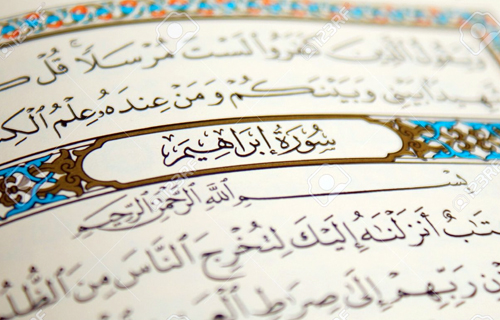 وَيَقُولُ ٱلَّذِينَ كَفَرُوا۟ لَسْتَ مُرْسَلًا ۚ قُلْ
بَيْنِى وَبَيْنَكُمْ وَمَنْ عِندَهُۥ عِلْمُ ٱلْكِ
سُورَةُ إِبْرَاهِيمَ
بِسْمِ ٱللَّهِ ٱلرَّحْمَٰنِ ٱلرَّحِيمِ
تَٰبٌ أَنزَلْنَٰهُ إِلَيْكَ لِتُخْرِجَ ٱلنَّاسَ مِنَ ٱلظُّلُ
نِ رَبِّهِمْ إِلَىٰ صِرَٰطِ